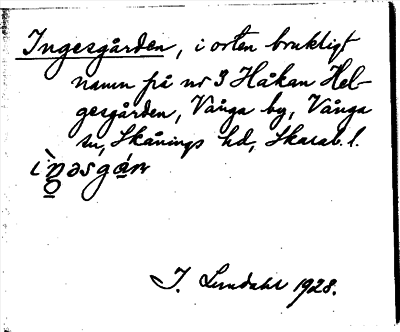 Ingesgården, i orten brukligt
namn på nr 3 Håkan Hel-
gesgården, Vånga by, Vånga
sn, Skånings hd, Skarab. l.
J. Lundahl 1928.